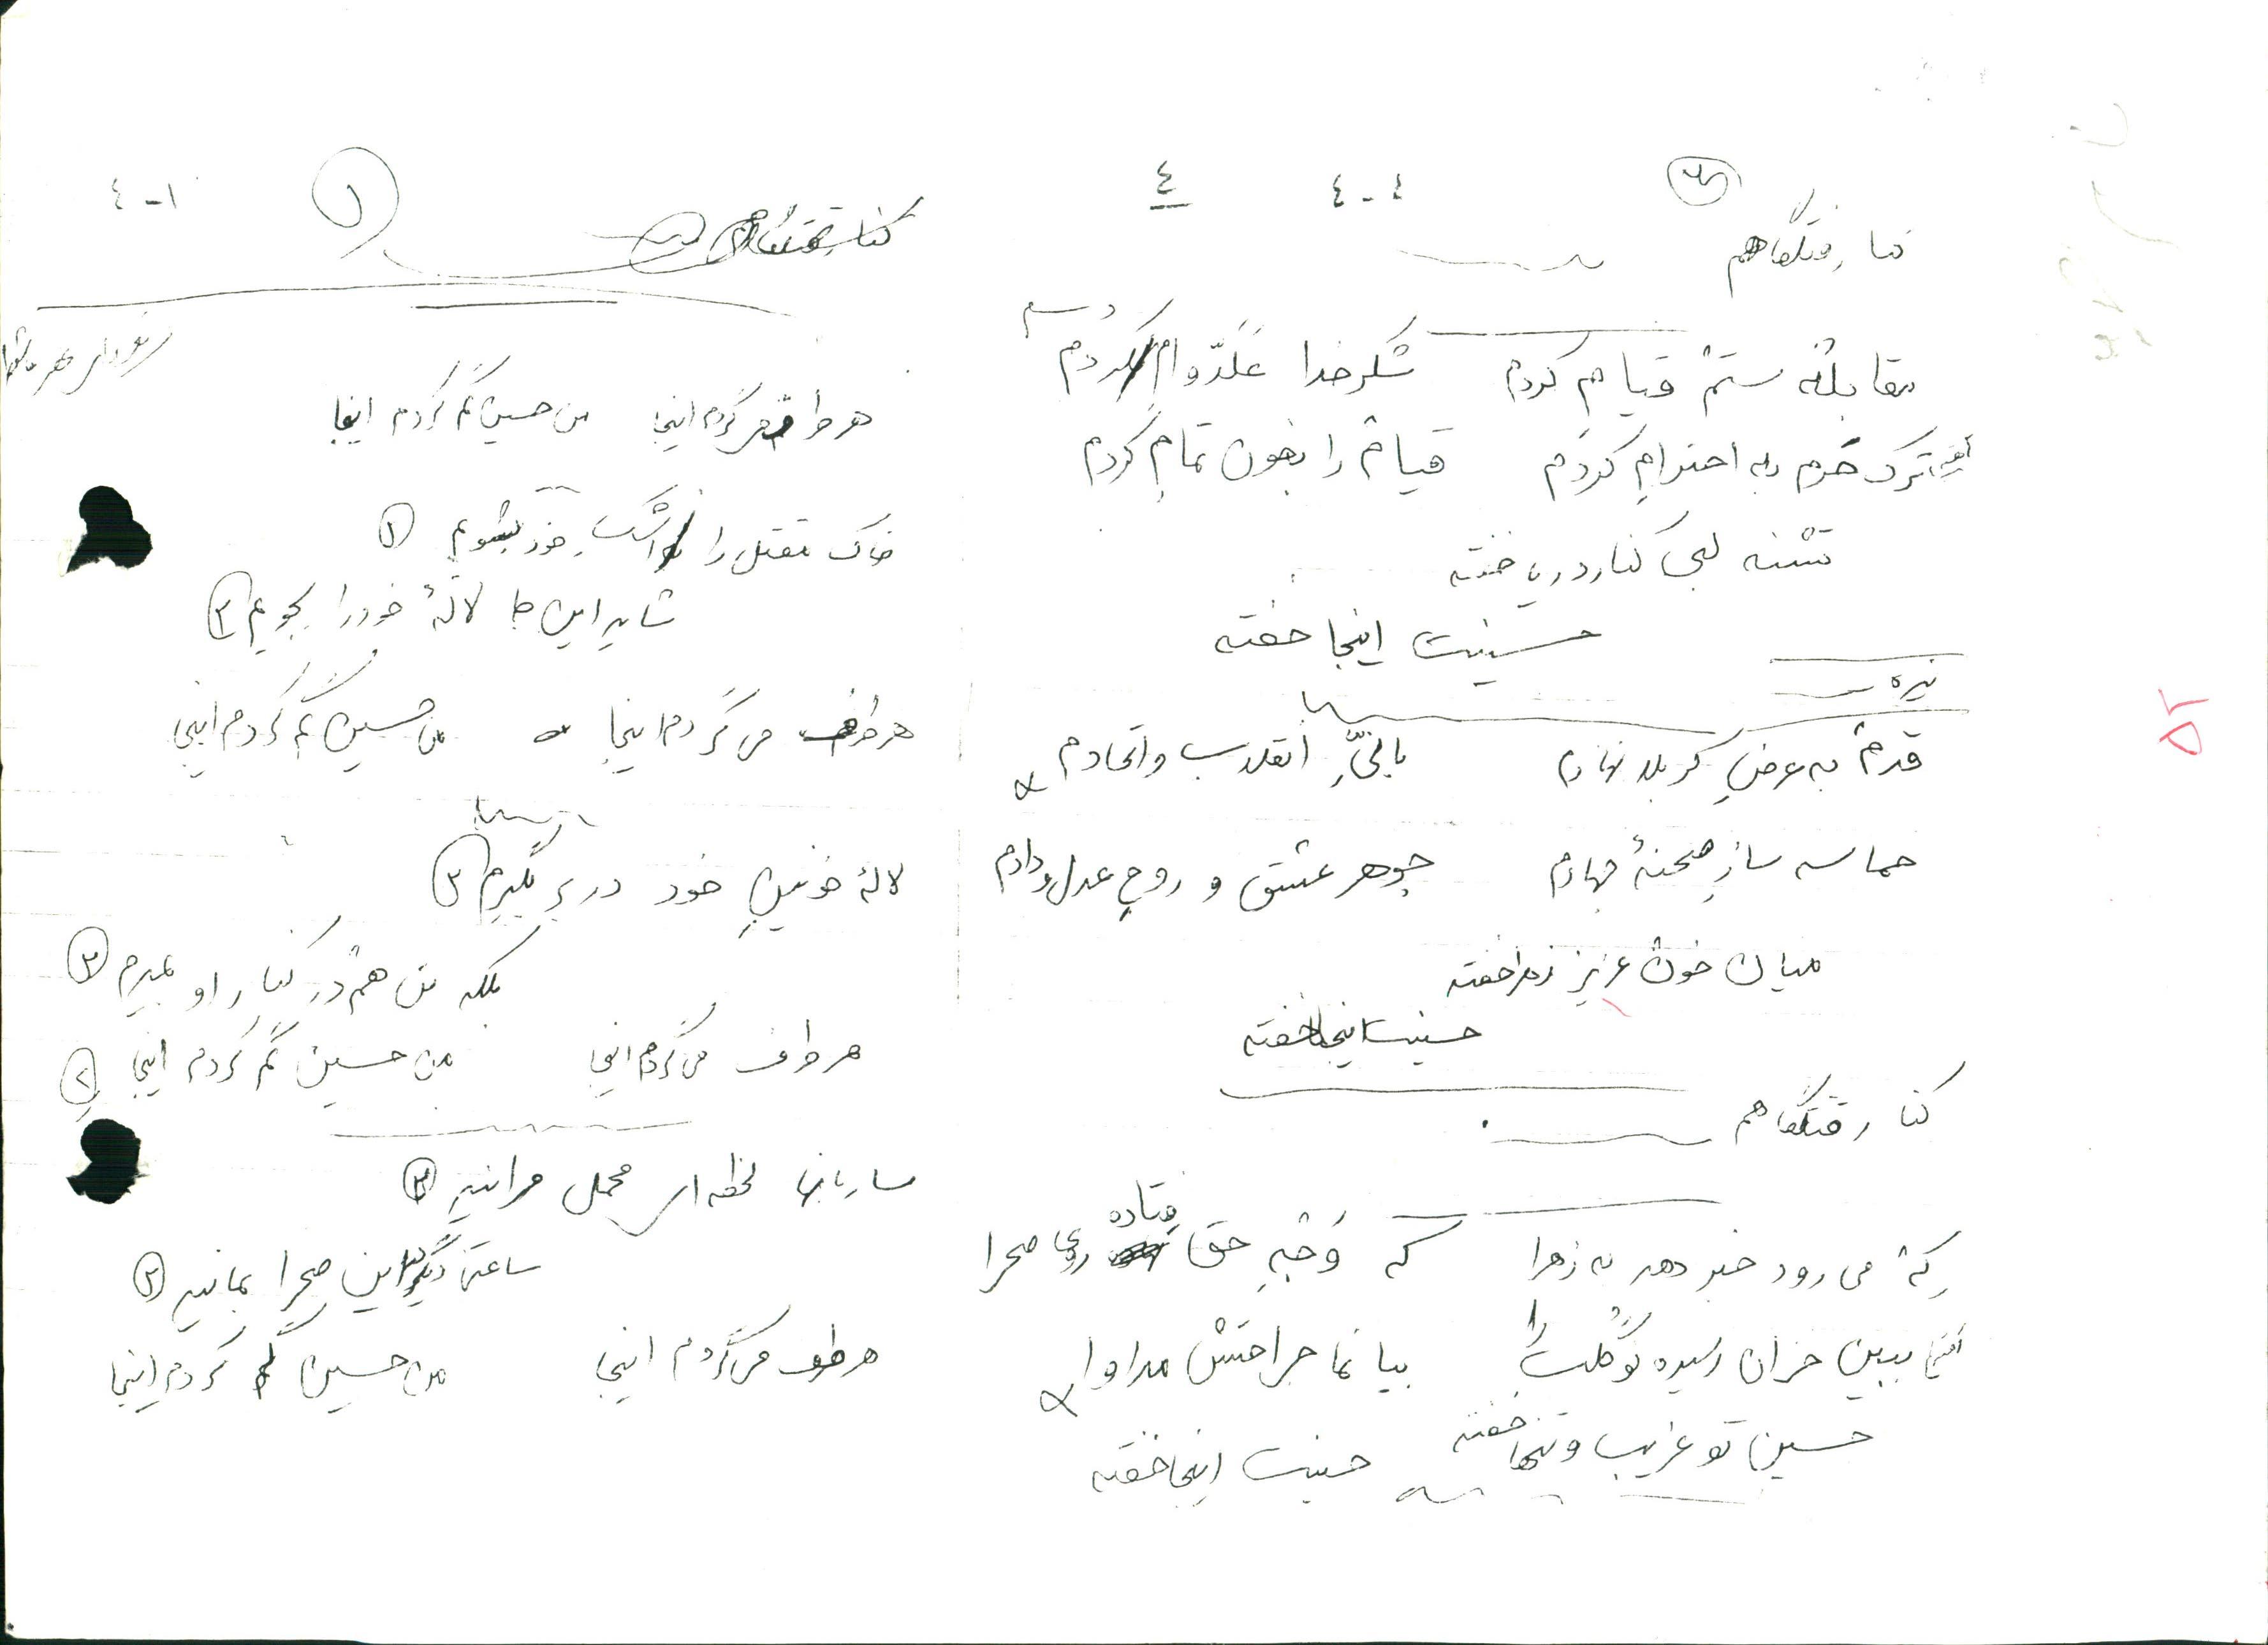 ۳
٤-٤
٤
کنار قتلگاهم
مقابلهٔ ستم قیام کردم شکر خدا عَلَدّوام کردم
ترک حَرَم به احترام کردم قیام را بخون تمام کردم
تشنه لبی کنار دریا خفته
حسینیت اینجا خفته
نیزه
قدم به عرضِ کربلا نهادم بانیِّ انقلاب و اتحادم
حماسه سازِ صحنهٔ جهادم جوهر عشق و روحِ عدل و دادم
میان خون عزیز زهرا خفته
حسینیت اینجا خفته
کنار قتلگاهم
کِه می رود خبر دهد به زهرا که وَجْهِ حق فتاده روی صحرا
ببین خزان رسیده نوگلت را بیا نما جراحتش مداوا
حسین تو غریب و تنها خفته حسینیت اینجا خفته
۵۲
۱
۱-٤
هر طرف می گردم اینجا من حسین گم کردم اینجا
خاک مقتل را با اشک خود بشویم ۲
شاید این جا لالهٔ خود را بجویم ۲
هر طرف می گردم اینجا من حسین گم کردم اینجا
لالهٔ خونین خود در بر بگیرم ۲
بلکه من هم در کنار او بمیرم ۲
هر طرف می گردم اینجا من حسین گم کردم اینجا ۲
ساربانها لحظه ای محمل مرانید ۲
ساعتی دیگر در این صحرا بمانید ۲
هر طرف می گردم اینجا من حسین گم کردم اینجا